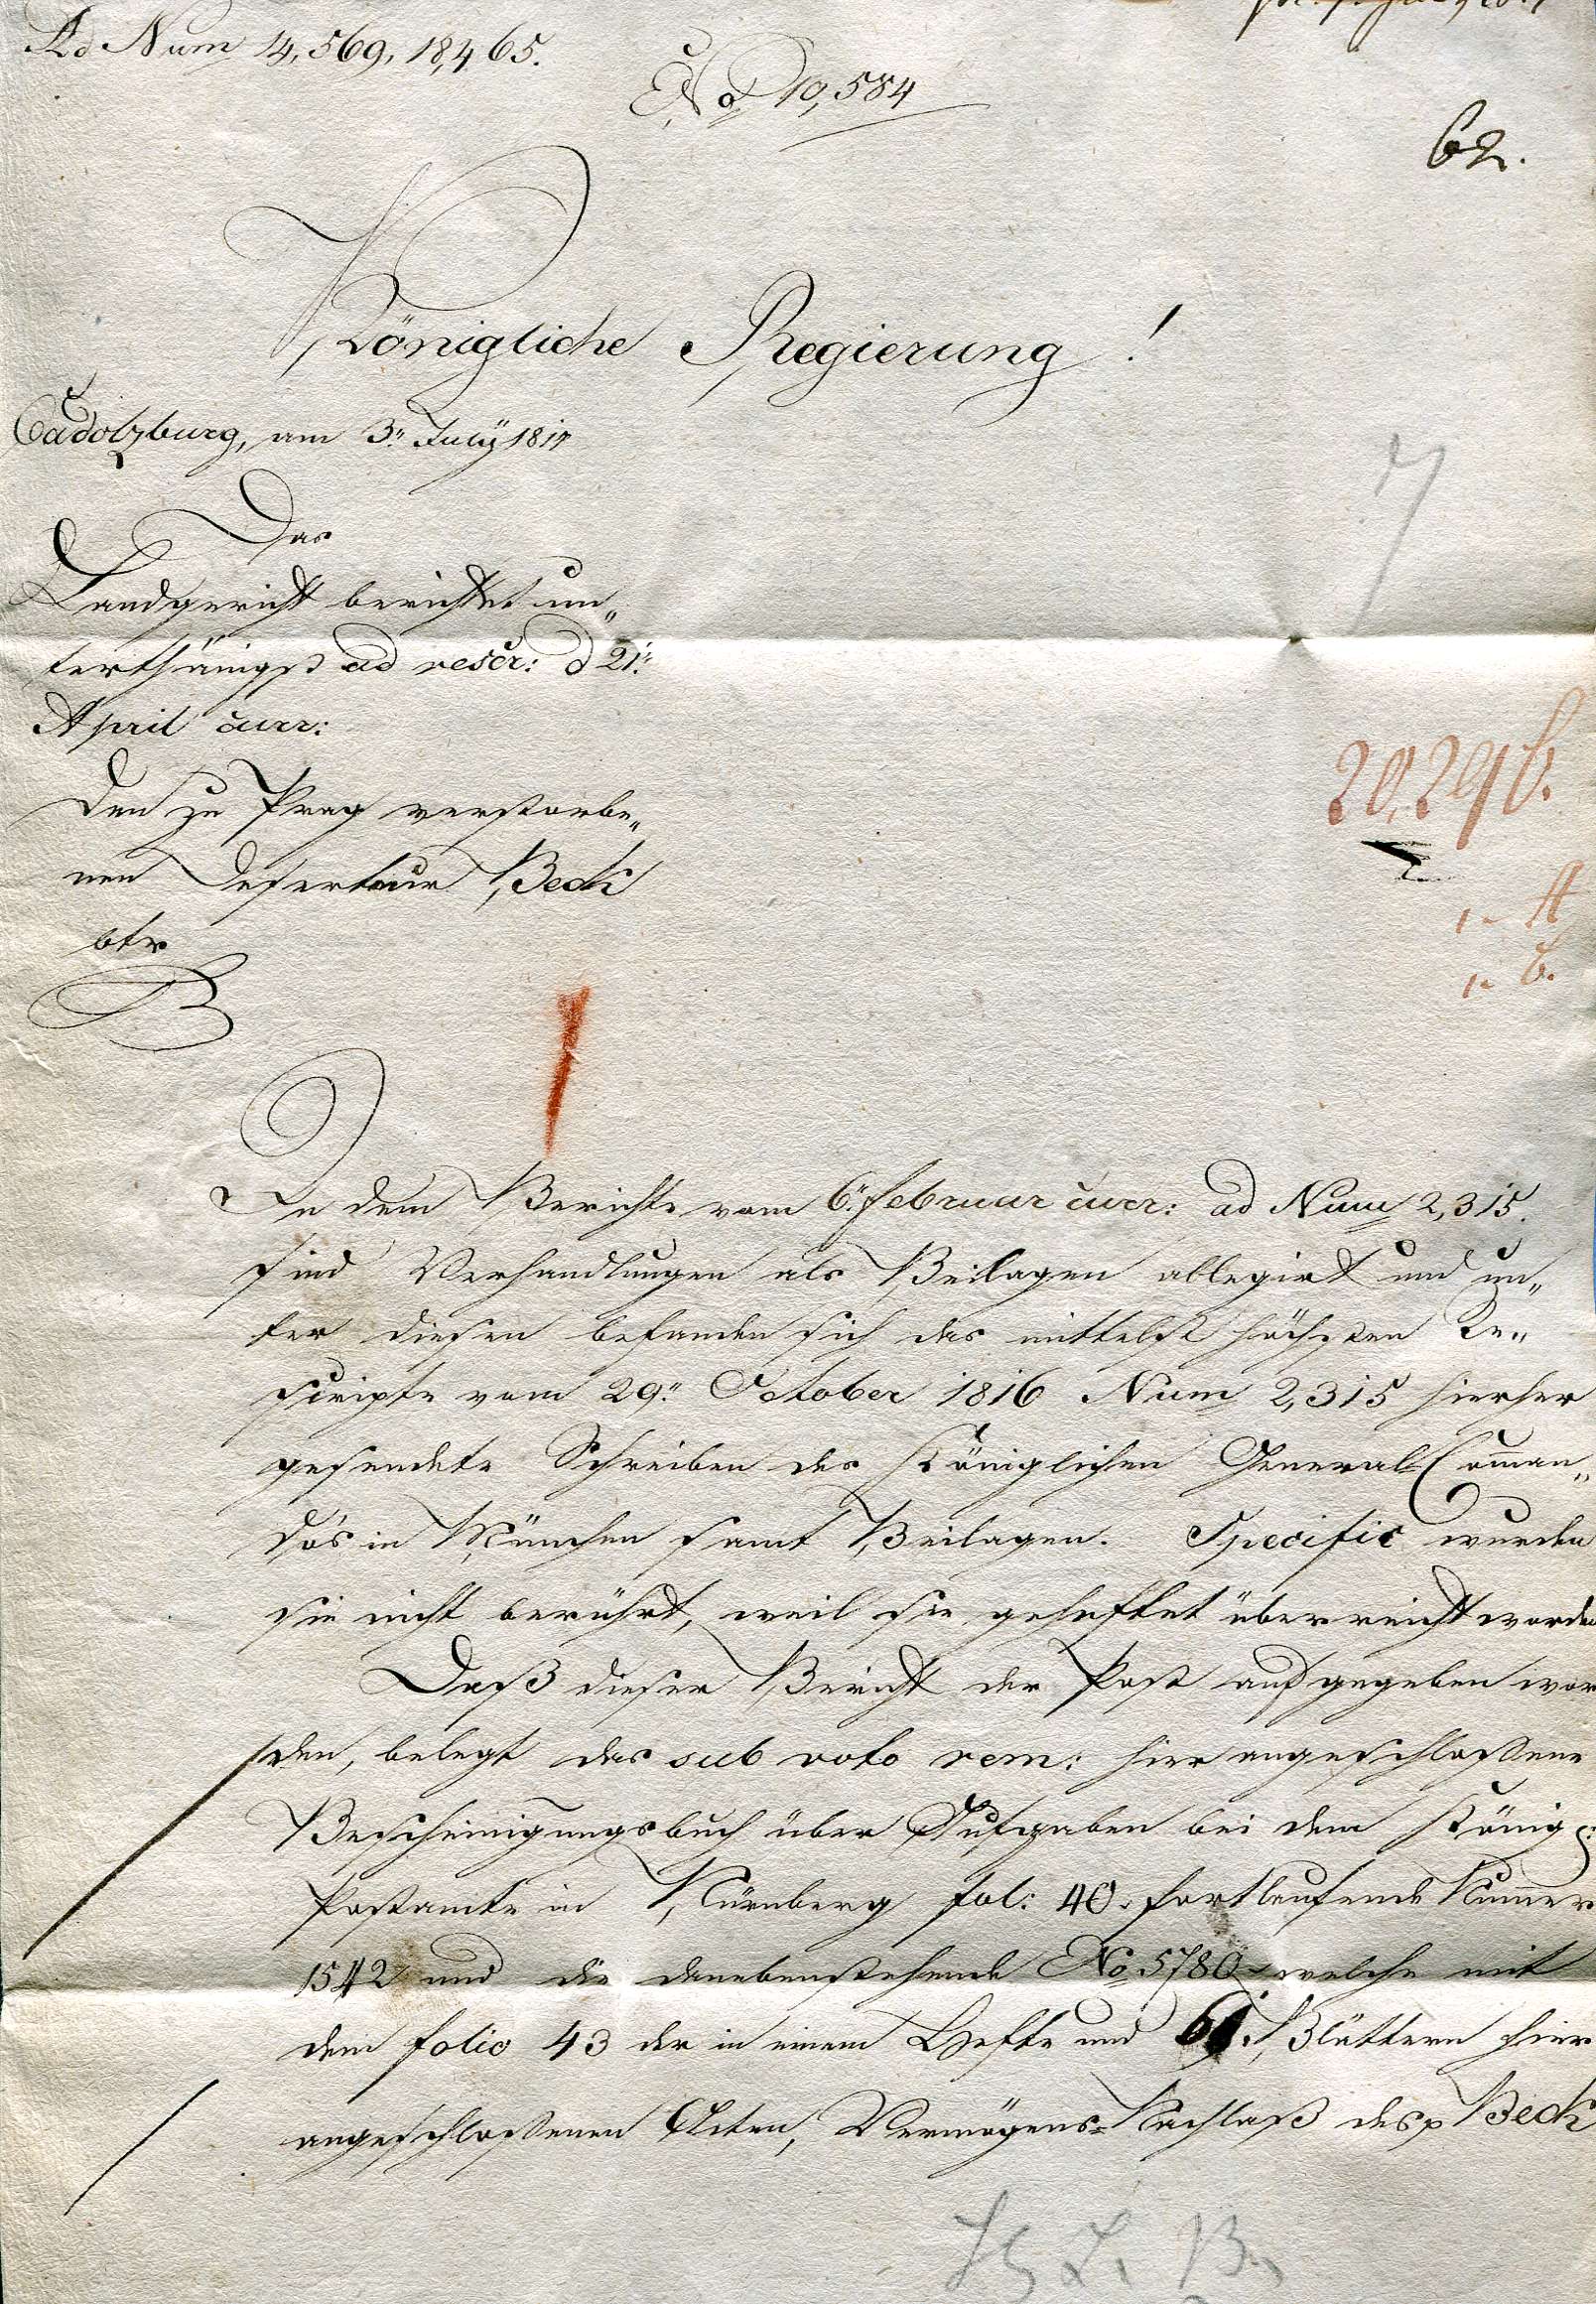 Ad Num 14,569, 18,465.
No 10,584
62.
Königliche Regierung!
Cadolzburg, am 3.' July 1817
Das
Landgericht berichtet un„
terthänigst ad rescr: d 21.'
April curr:
den zu Prag verstorbe„
nen Deserteur Beck
btr
20,296.
1. A
1. B.
In dem Berichte vom 6.' Februar curr: ad Num 2,315.
sind Verhandlungen als Beilagen allegirt und un„
ter diesen befanden sich das mittelst höchsten Re„
scripts vom 29.' October 1816 Num 2,315 hierher
gesendete Schreiben des Königlichen General-Comman„
do's in München samt Beilagen. Specific wurden
sie nicht berührt, weil sie geheftet überreicht worden
Daß dieser Bericht der Post aufgegeben wor
den, belegt das sub voto rem: hier angeschloßene
Bescheinigungsbuch über Aufgaben bei dem Königl:
Postamte in Nürnberg fol: 40. fortlaufende Numer
1542 und die danebenstehende No 5780 welche mit
dem folio 43 der in einem Hefte und 61. Blättern hier
angeschloßenen Acten, Vermögens-Nachlaß des p Beck